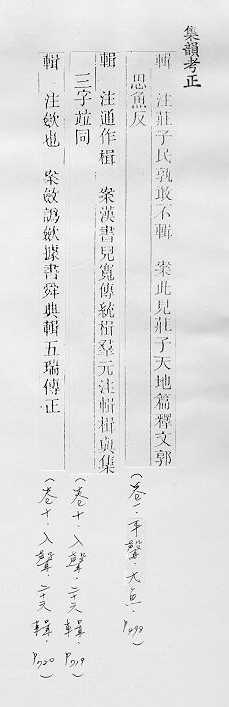 集韻考正
輯 注莊子民孰敢不輯 案此見莊子天地篇釋文郭
思魚反
輯 注通作楫 案漢書兒寬傳統楫羣元注輯楫與集
三字並同
輯 注斂也 案斂譌歛據書舜典輯五瑞傳正
(卷一．平聲．九魚．P.
(卷十．入聲．二十六緝．P719)
(卷十．入聲．二十六緝．P720)